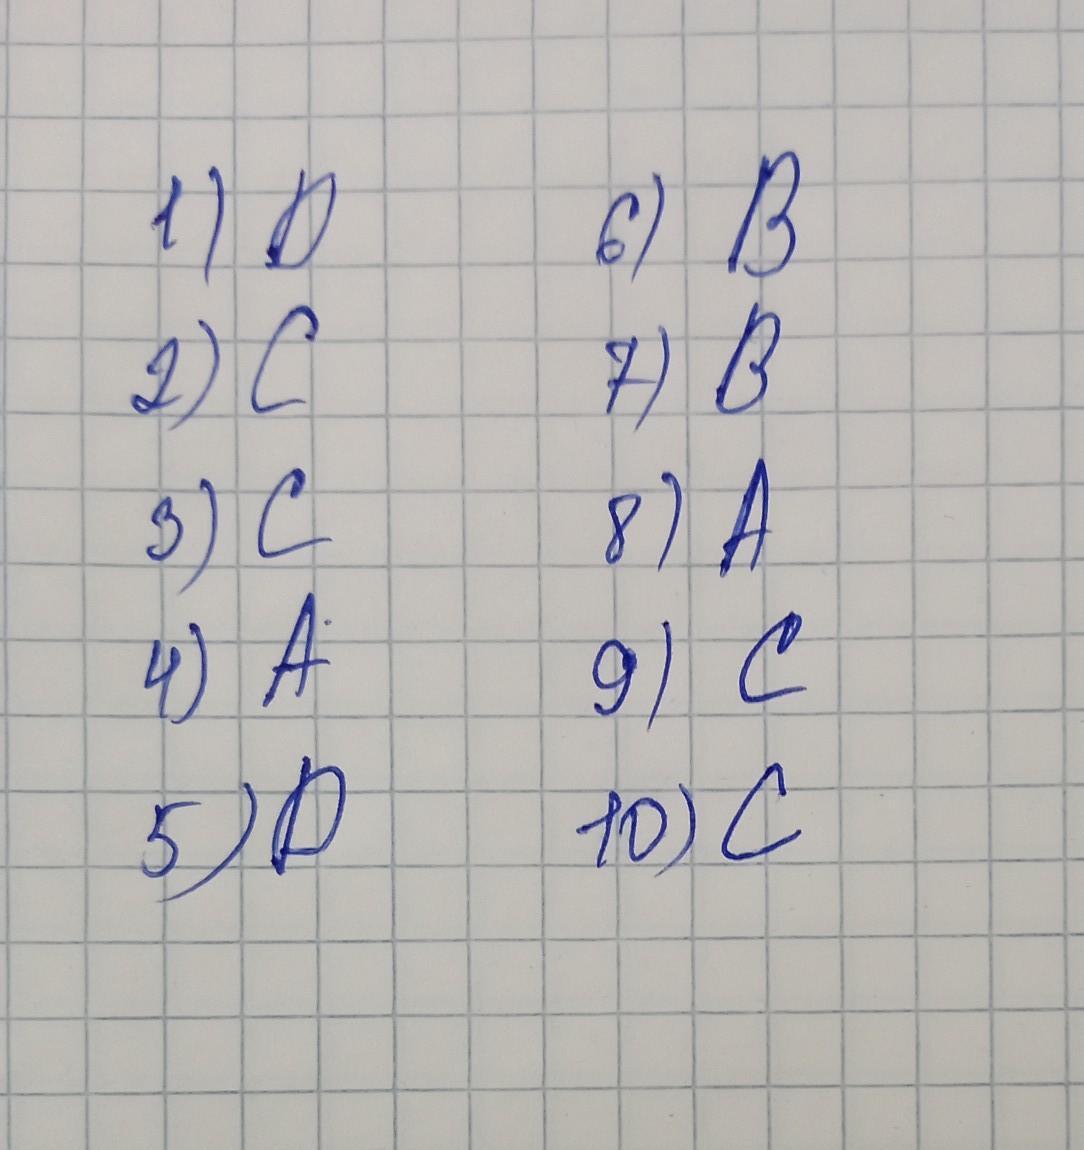 1) D
2) C
3) C
4) A
5) D
6) B
7) B
8) A
9) C
10) C